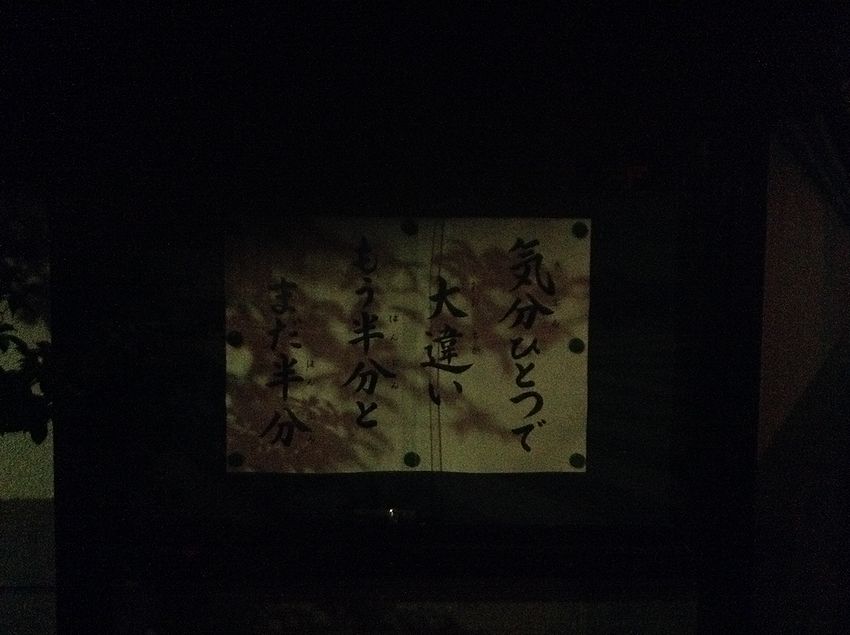 気分ひとつで
大違い
もう半分と
まだ半分